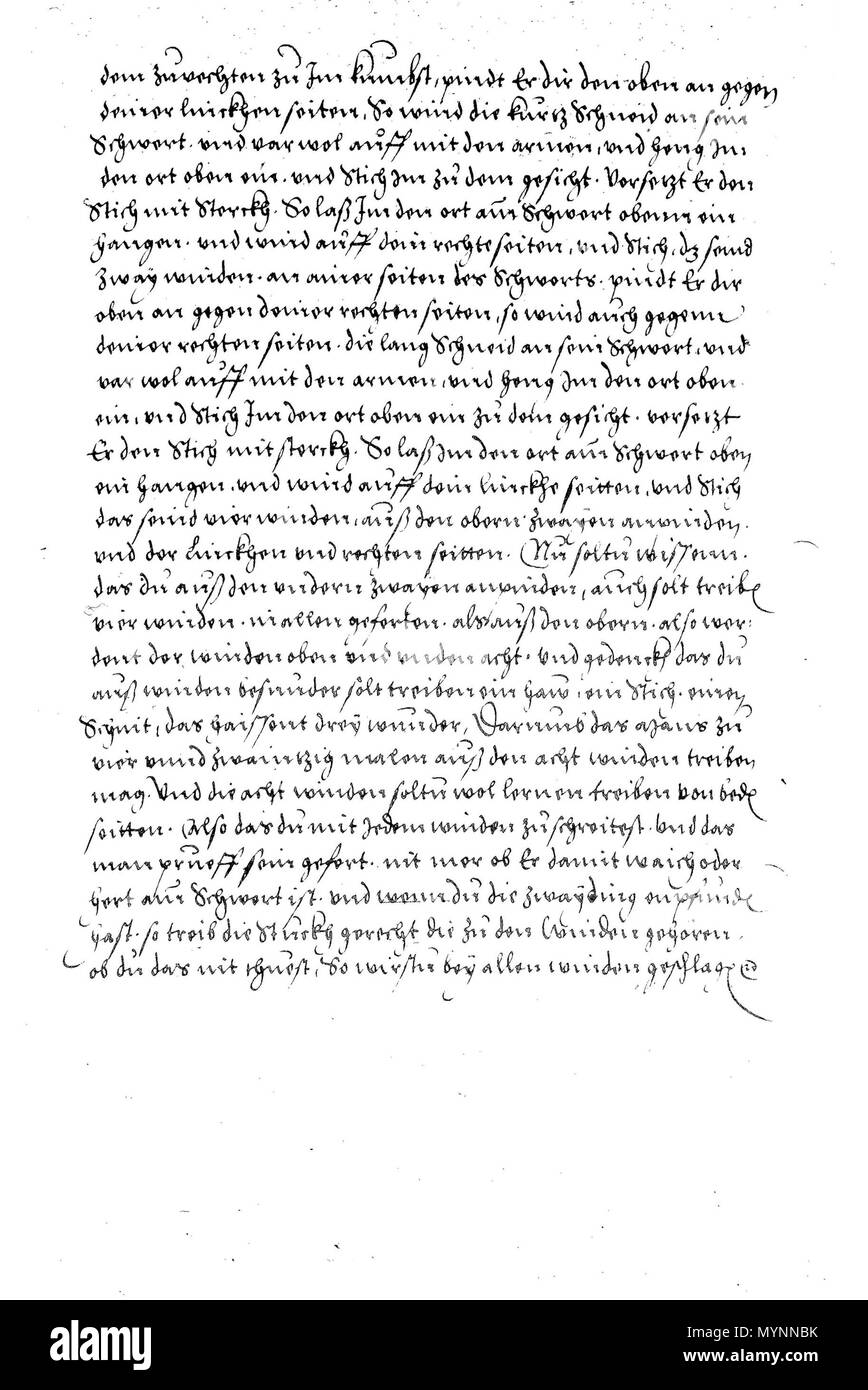 dem zuvechten zu Im kumbst, pindt Er dir den oben an gegen
deiner linckhen seiten, So wind die kurtz Schneid an sein
Schwert · und var wol auff mit den armen, und heng Im
den ort oben ein · und Stich Im zu dem gesicht · Versetzt Er den
Stich mit Sterckh · So laß Im den ort am Schwert obenn ein
hangen · und wind auff dein rechte seiten, und Stich, dz seind
zway winden · an ainer seiten des Schwerts · pindt Er dir
oben an gegen deiner rechten seiten, so wind auch gegenn
deiner rechten seiten · die lang Schneid an sein Schwert, und
var wol auff mit den armen, und heng Im den ort oben
ein, und Stich Im den ort oben ein zu dem gesicht · versetzt
Er den Stich mit sterckh · So laß Im den ort am Schwert oben
ein hangen, und wind auff dein linckhe seitten, und Stich
das seind vier winden, auß den obern zwayen anwinden ·
und der Linckhen und rechten seitten · Nu soltu wissenn ·
das du auß den undern zwayen anpinden, auch solt treib
vier winden · in allen geferten · als auß den obern · also wer:
dent der winden oben und unden acht · und gedenckh das du
auß winden besunder solt treiben ein haw, ein Stich · einen
Schnit, das haissent drey wunder, Darumb das mans zu
vier unnd zwaintzig malen auß den acht winden treiben
mag · Und die acht winden soltu wol lernen treiben von bed
seitten · Also das du mit Jedem winden zu schreitest · und das
man prueff sein gefert · nit mer ob Er damit waich oder
hert am Schwert ist · und wenn du die zway ding enpfund
hast · so treib die Stuckh gerecht die zu den Winden gehören ·
ob du das nit thuest, So wirstu bey allen winden geschlag
alamy
Image ID: MYNNBK
www.alamy.com